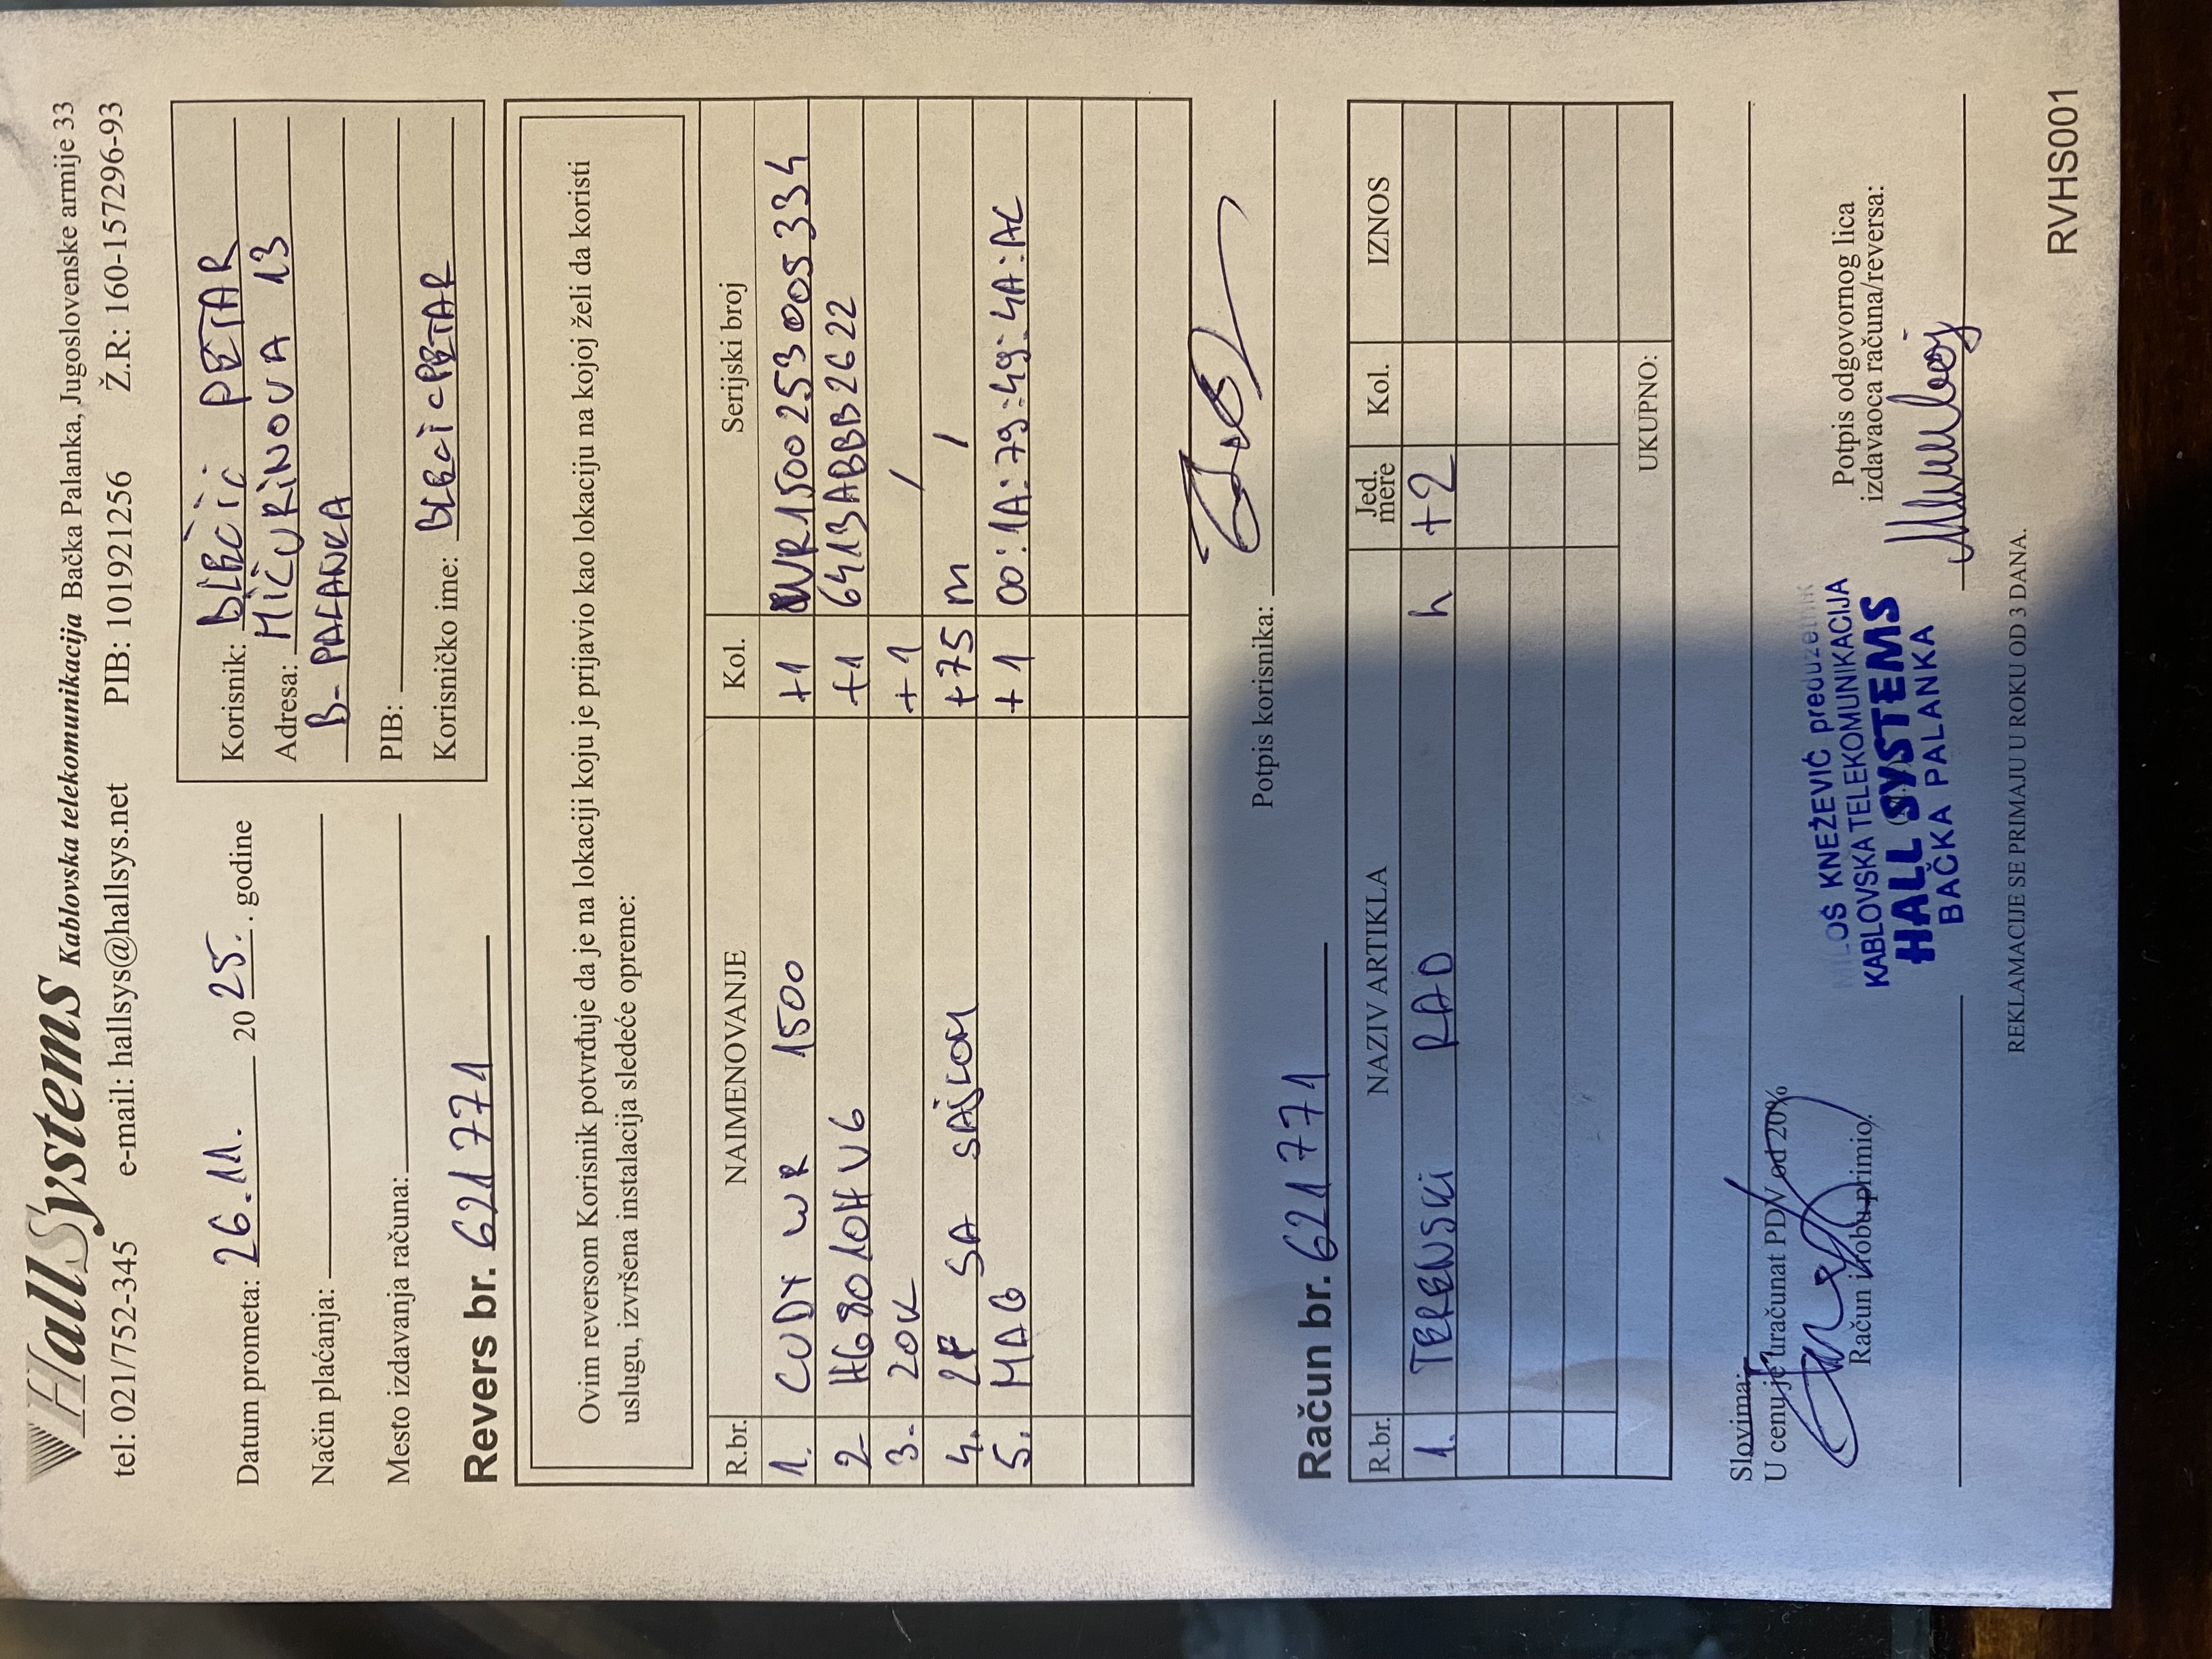 HallSystems Kablovska telekomunikacija Bačka Palanka, Jugoslovenske armije 33
tel: 021/752-345 e-mail: hallsys@hallsys.net PIB: 101921256 Ž.R.: 160-157296-93
Datum prometa: 26.11. 2025. . godine
Način plaćanja:
Mesto izdavanja računa:
Korisnik: BLECIC PETAR
Adresa: MIČURINOVA 13
B-PALANKA
PIB:
Korisničko ime: BLECICPETAR
Revers br. 621771
Ovim reversom Korisnik potvrđuje da je na lokaciji koju je prijavio kao lokaciju na kojoj želi da koristi
uslugu, izvršena instalacija sledeće opreme:
R.br. NAIMENOVANJE Kol. Serijski broj
1. CUDY WR 1500 +1 WR1500253005334
2- HG8010H V6 +1 6413ABBB2622
3- 20K +1 /
4. 2F SA SAJLOM +75 m /
5. MAG +1 00:1A:79:49:4A:AC
Potpis korisnika:
Račun br. 621771
R.br. NAZIV ARTIKLA Jed. mere Kol. IZNOS
1. TERENSKI RAD h +2
UKUPNO:
Slovima:
U cenu je uračunat PDV od 20%
Račun i robu primio:
MILOŠ KNEŽEVIĆ preduzetnik
KABLOVSKA TELEKOMUNIKACIJA
HALL SYSTEMS
BAČKA PALANKA
Potpis odgovornog lica
izdavaoca računa/reversa:
REKLAMACIJE SE PRIMAJU U ROKU OD 3 DANA.
RVHS001